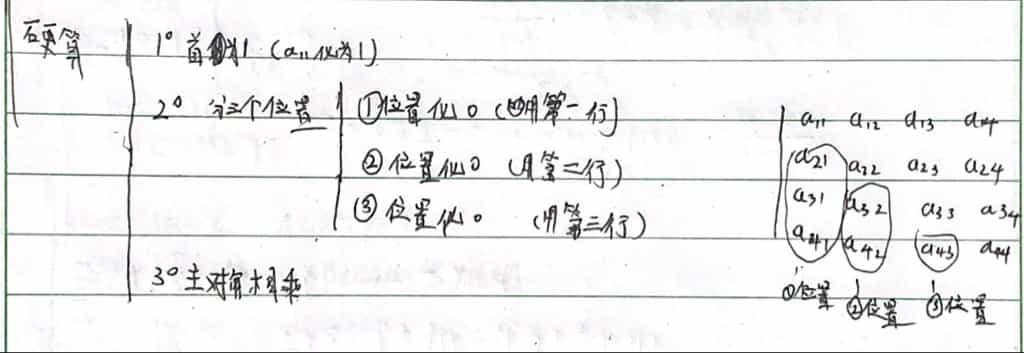 硬算
1° 首化为1 (a₁₁化为1)
2° 分三个位置
①位置化0 (用第一行)
②位置化0 (用第二行)
③位置化0 (用第三行)
3° 主对角相乘
a₁₁ a₁₂ a₁₃ a₁₄
a₂₁ a₂₂ a₂₃ a₂₄
a₃₁ a₃₂ a₃₃ a₃₄
a₄₁ a₄₂ a₄₃ a₄₄
①位置 ②位置 ③位置